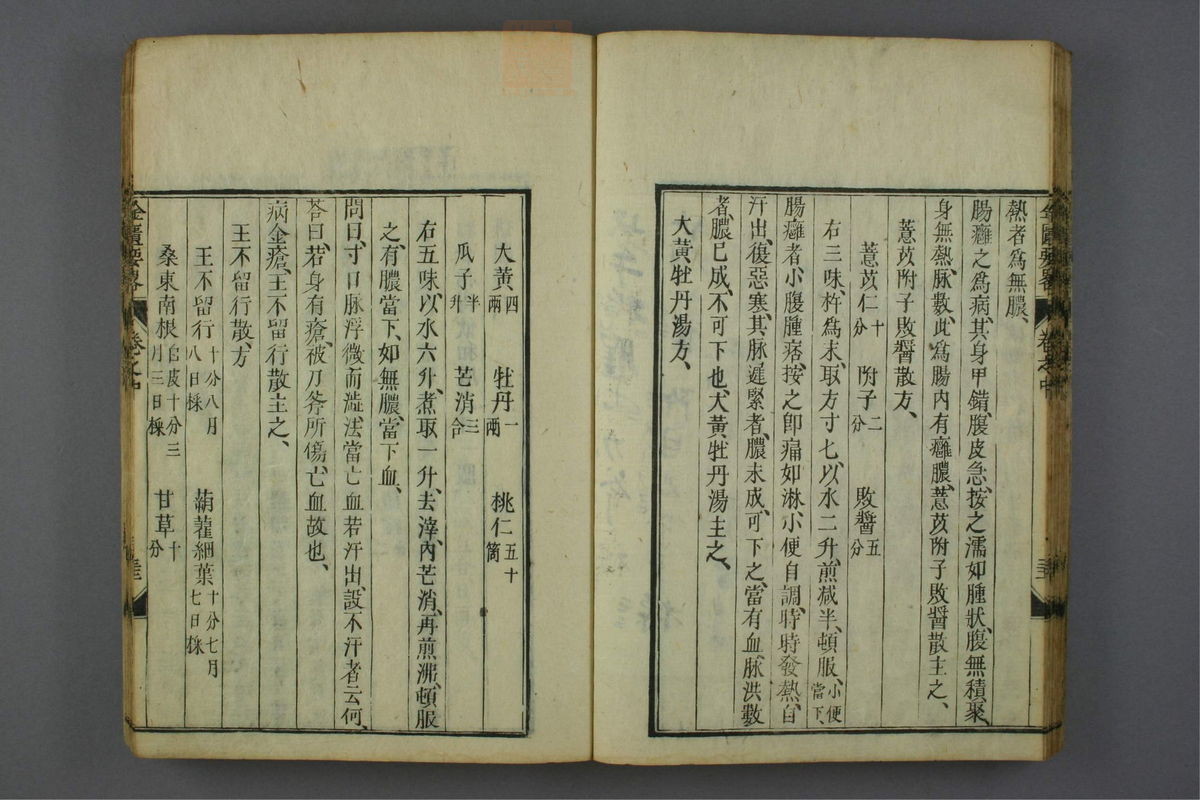 熱者爲無膿、
腸癰之爲病、其身甲錯、腹皮急、按之濡如腫狀、腹無積聚、
身無熱、脉數、此爲腸内有癰膿、薏苡附子敗醬散主之、
薏苡附子敗醬散方、
薏苡仁十分 附子二分 敗醬五分
右三味、杵爲末、取方寸匕、以水二升、煎減半、頓服、小便當下、
腸癰者、小腹腫痞、按之卽痛如淋、小便自調、時時發熱、自
汗出、復惡寒、其脉遲緊者、膿未成、可下之、當有血、脉洪數
者、膿已成、不可下也、大黃牡丹湯主之、
大黃牡丹湯方、
大黃四兩 牡丹一兩 桃仁五十箇
瓜子半升 芒消三合
右五味、以水六升、煮取一升、去滓、内芒消、再煎沸、頓服
之、有膿當下、如無膿、當下血、
問曰、寸口脉浮微而澁、法當亡血若汗出、設不汗者云何、
荅曰、若身有瘡、被刀斧所傷、亡血故也、
病金瘡、王不留行散主之、
王不留行散、方
王不留行十分八月八日採 蒴藋細葉十分七月七日採
桑東南根白皮十分三月三日採 甘草十分
金匱要畧 卷之中